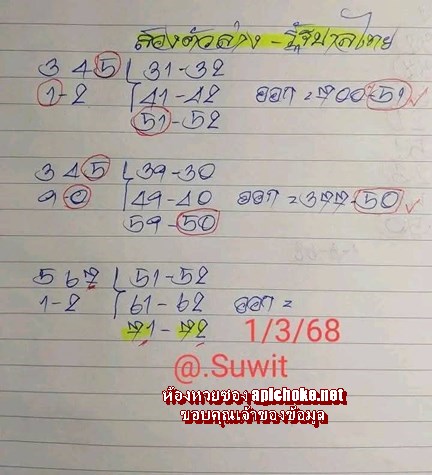 สองตัวล่าง - รัฐบาลไทย
3 4 5 { 31-32
1-2 41-42 ออก = 700-51
51-52
3 4 5 { 39-30
9-0 49-40 ออก = 377-50
59-50
5 6 7 { 51-52
1-2 61-62 ออก =
71-72 1/3/68
@.Suwit
ห้องหวยซอง apichoke.net
ขอบคุณเจ้าของข้อมูล